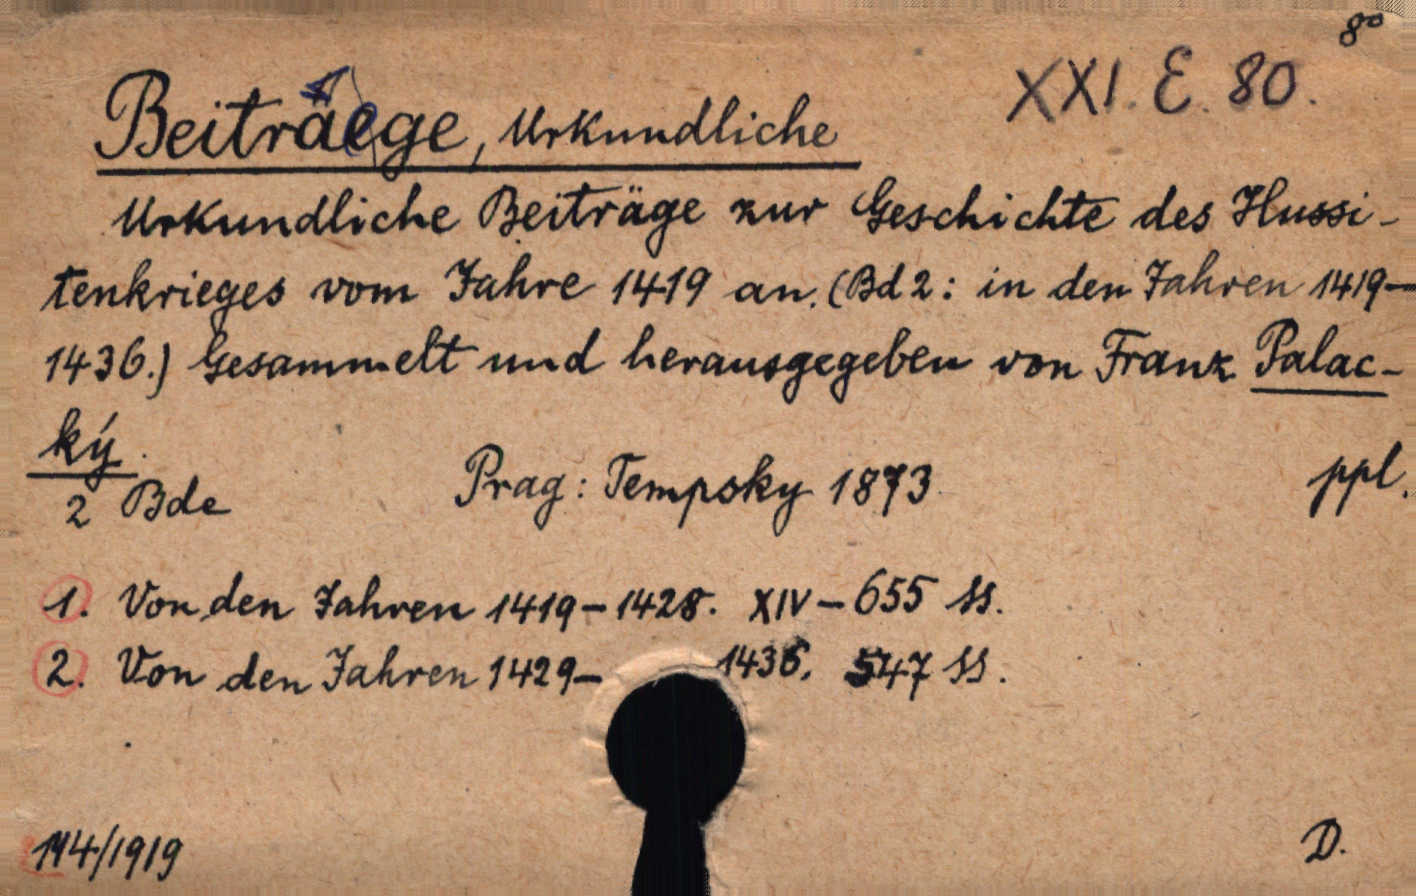 8°
XXI. E. 80.
Beiträge, Urkundliche
Urkundliche Beiträge zur Geschichte des Hussi-
tenkrieges vom Jahre 1419 an. (Bd 2: in den Jahren 1419–
1436.) Gesammelt und herausgegeben von Franz Palac-
ký.
2 Bde Prag: Tempsky 1873 ppl.
1. Von den Jahren 1419–1428. XIV–655 SS.
2. Von den Jahren 1429–1436. 547 SS.
/1919 D.